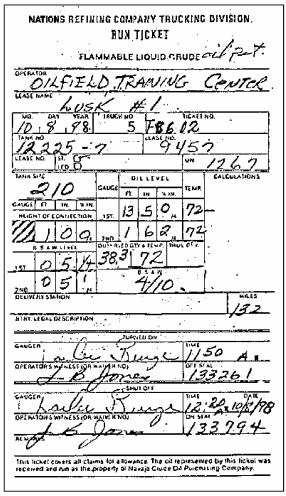 NATIONS REFINING COMPANY TRUCKING DIVISION.
RUN TICKET
FLAMMABLE LIQUID CRUDE oil pet.
OPERATOR
OILFIELD TRAINING CENTER
LEASE NAME
LUSK #1
MO. DAY YEAR TRUCK NO TICKET NO.
10 8 98 5 F8612
TANK NO LEASE NO.
12,225-7 9457
LEASE NO. ST. 1267
TANK SIZE OIL LEVEL CALCULATIONS
210 GAUGE FT. IN. TEMP.
GAUGE FT. IN. 1ST 13 5 0 72
HEIGHT OF CONNECTION 2ND 1 6 2 72
1 0 0
B.S.&W. LEVEL OBSERVED GTY & TEMP. TRUE GTY.
1ST 0 5 38.3 72
2ND 0 5 B.S.&W. 4/10.
DELIVERY STATION MILES
132
LEGAL DESCRIPTION
TURNED ON
GAUGER TIME
1150 A.
OPERATOR'S WITNESS (OR WAIVER NO.) OFF SEAL
J B Jones 133261
SHUT OFF
GAUGER TIME DATE
12:20 10/8/98
OPERATOR'S WITNESS (OR WAIVER NO) ON SEAL
J B Jones 133794
REMARKS
This ticket covers all claims for allowance. The oil represented by this ticket was
received and run as the property of Navajo Crude Oil Purchasing Company.